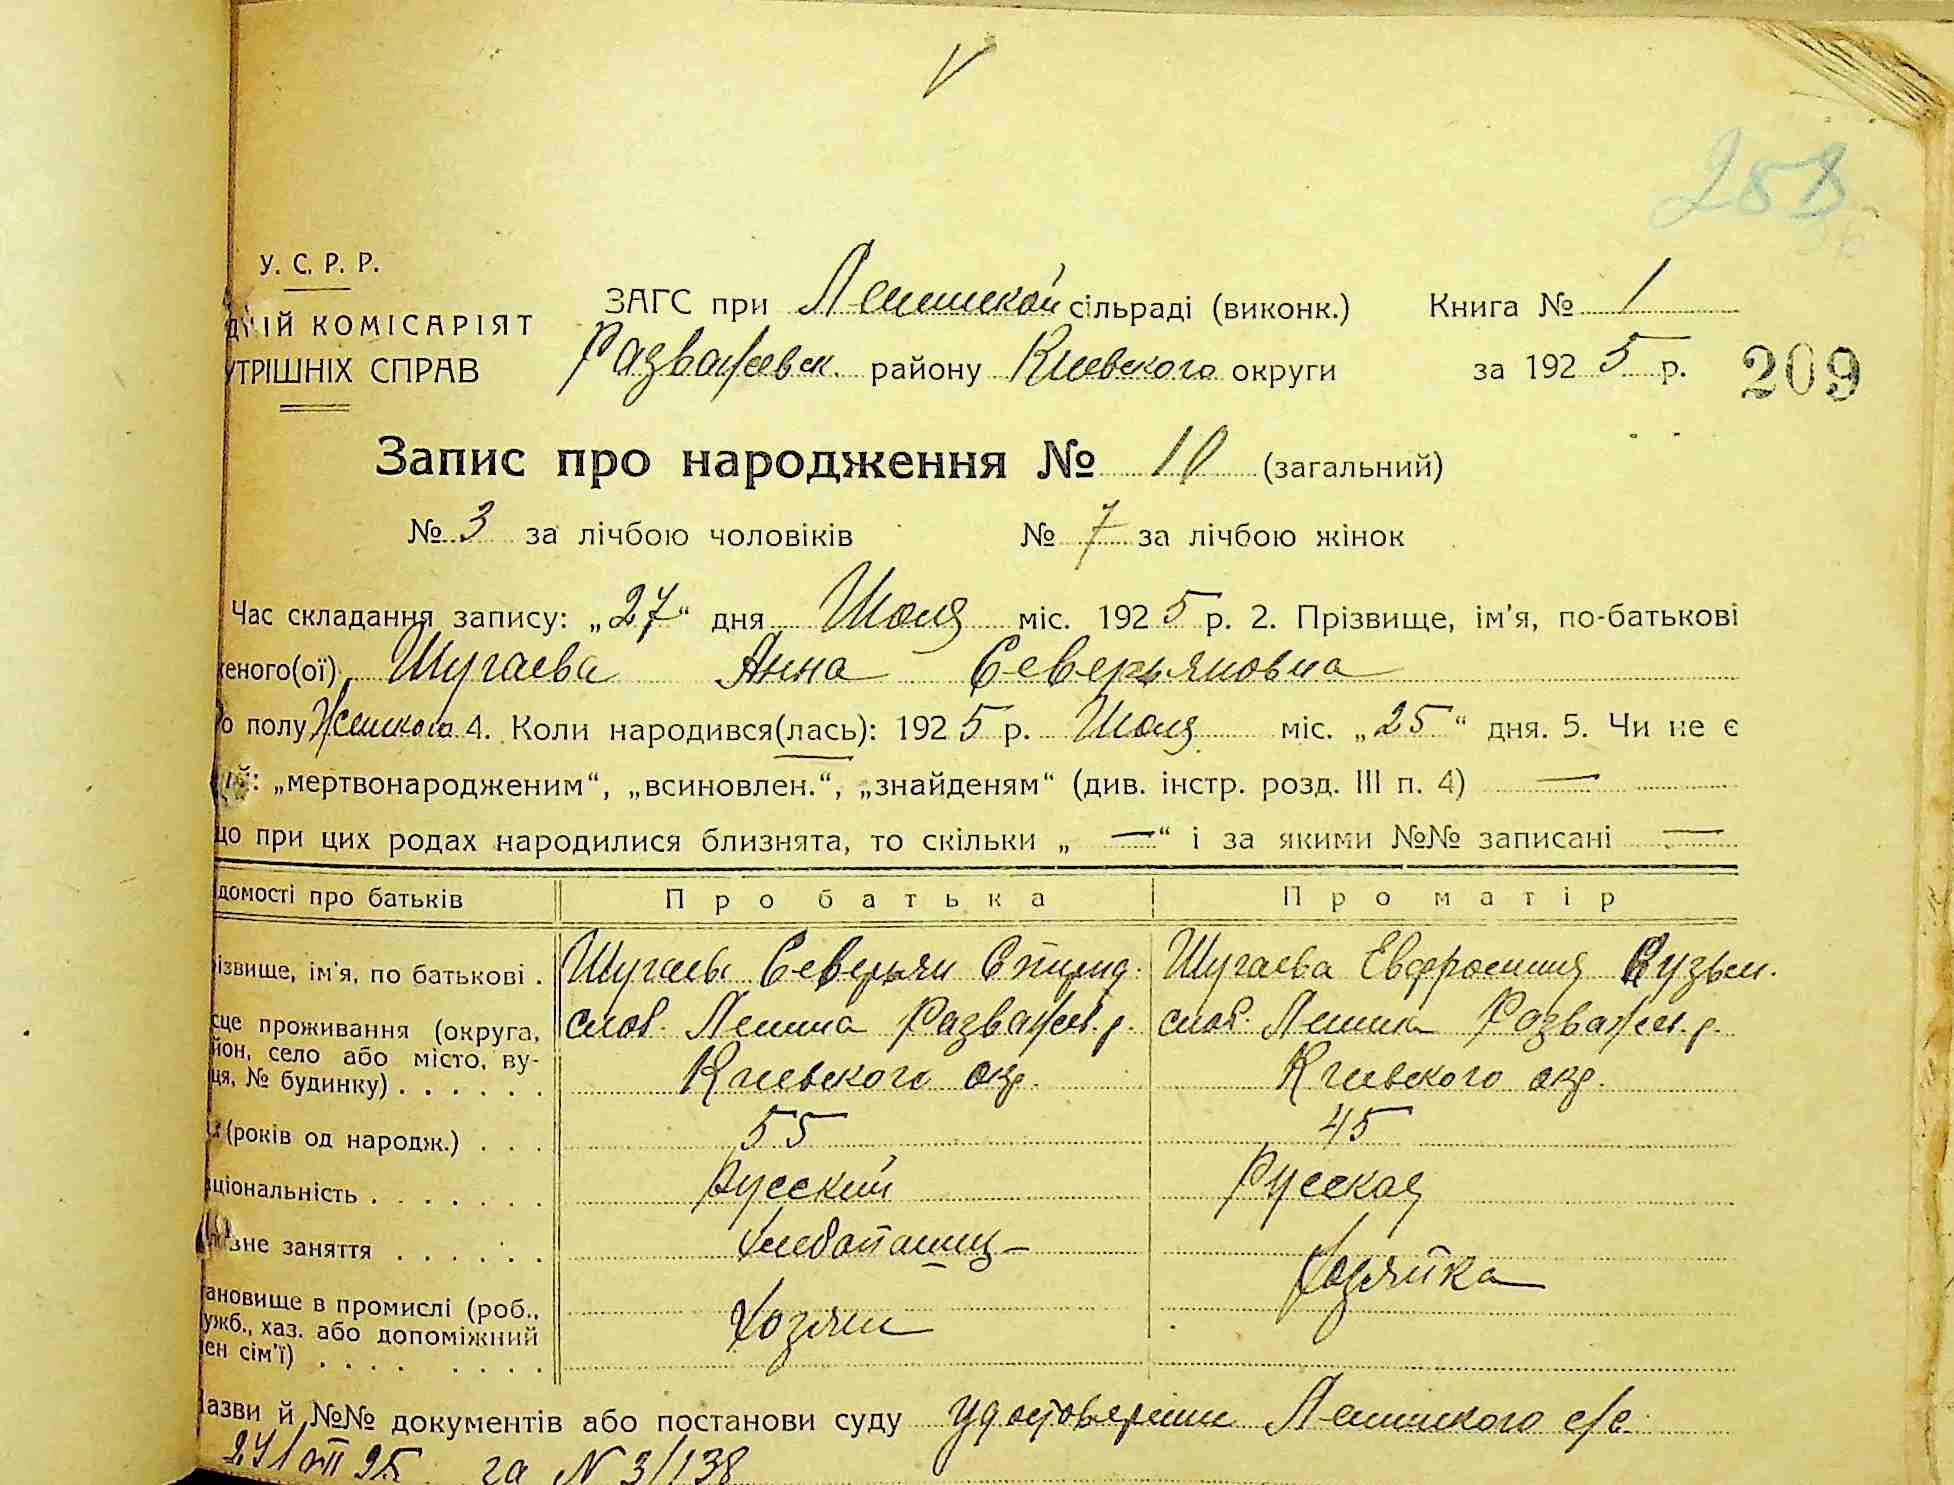 288
У. С. Р. Р.
ДНІЙ КОМІСАРІЯТ
УТРІШНІХ СПРАВ
ЗАГС при Ленинской сільраді (виконк.) Книга № 1
Разважевск. району Киевского округи за 1925 р. 209
Запис про народження № 10 (загальний)
№ 3 за лічбою чоловіків № 7 за лічбою жінок
Час складання запису: „27“ дня Июля міс. 1925 р. 2. Прізвище, ім'я, по-батькові
женого(ої) Шугаева Анна Северьяновна
о полу Женского 4. Коли народився(лась): 1925 р. Июля міс. „25“ дня. 5. Чи не є
: „мертвонародженим“, „всиновлен.“, „знайденям“ (див. інстр. розд. III п. 4) —
що при цих родах народилися близнята, то скільки „ — “ і за якими №№ записані —
домості про батьків Про батька Про матір
ізвище, ім'я, по батькові . Шугаев Северьян Спирид. Шугаева Евфросиния Кузьм.
сце проживання (округа, слоб. Ленина Разважев. р. слоб. Ленина Разважев. р.
йон, село або місто, ву-
ця, № будинку) . . . . . . Киевского окр. Киевского окр.
(років од народж.) . . . 55 45
ціональність . . . . . . . Русский Русская
вне заняття . . . . . . Хлебопашец –
тановище в промислі (роб., Хозяйка
ужб., хаз. або допоміжний Хозяин
лен сім'ї) . . . . . . . .
Назви й №№ документів або постанови суду Удостоверение Ленинского с/с.
27/VII 25 за N 3/138